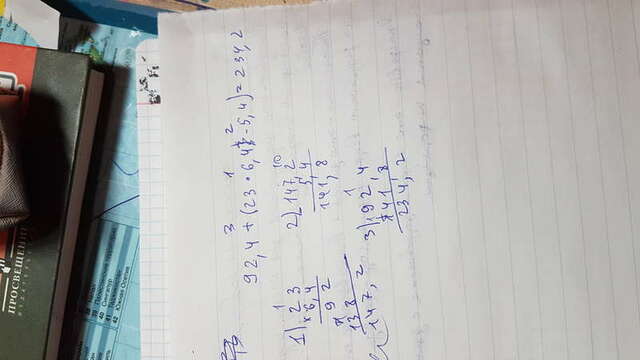 ПРОСВЕЩЕНИЕ
ИЗДАТЕЛЬСТВО
39 Палестинские территории
40 Сингапур
41 Таджикистан
42 Южная Осетия
3 1 2
92,4 + (23 · 6,4 - 5,4) = 234,2
1
1) 23
× 6,4
92
138
147,2
10
2) 147,2
5,4
141,8
1
3) 92,4
141,8
234,2